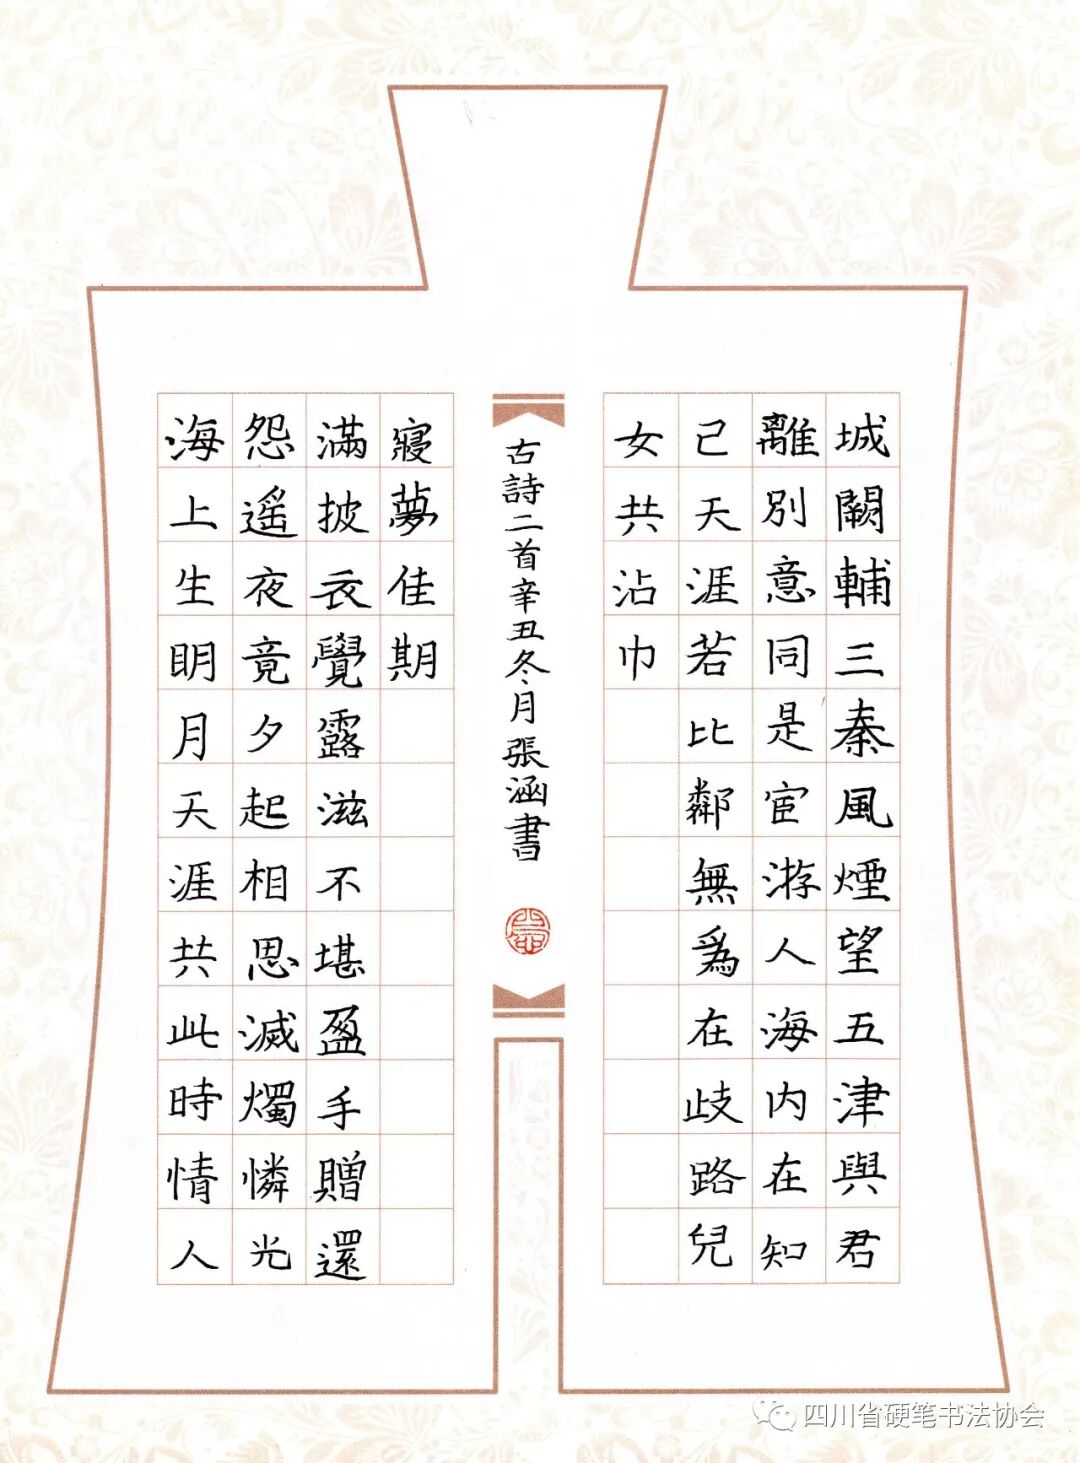 城闕輔三秦風煙望五津與君
離別意同是宦游人海内在知
己天涯若比鄰無爲在歧路兒
女共沾巾
海上生眀月天涯共此時情人
怨遥夜竟夕起相思滅燭憐光
滿披衣覺露滋不堪盈手贈還
寢夢佳期
古詩二首辛丑冬月張涵書
四川省硬笔书法协会